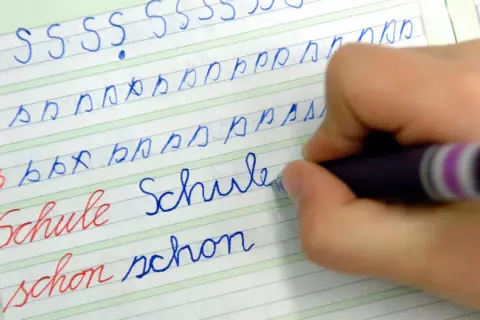 S S S S S S S S S S
s s s s s s s s s s s s s s s
s s s s s s s s s s s s
Schule Schule
schon schon